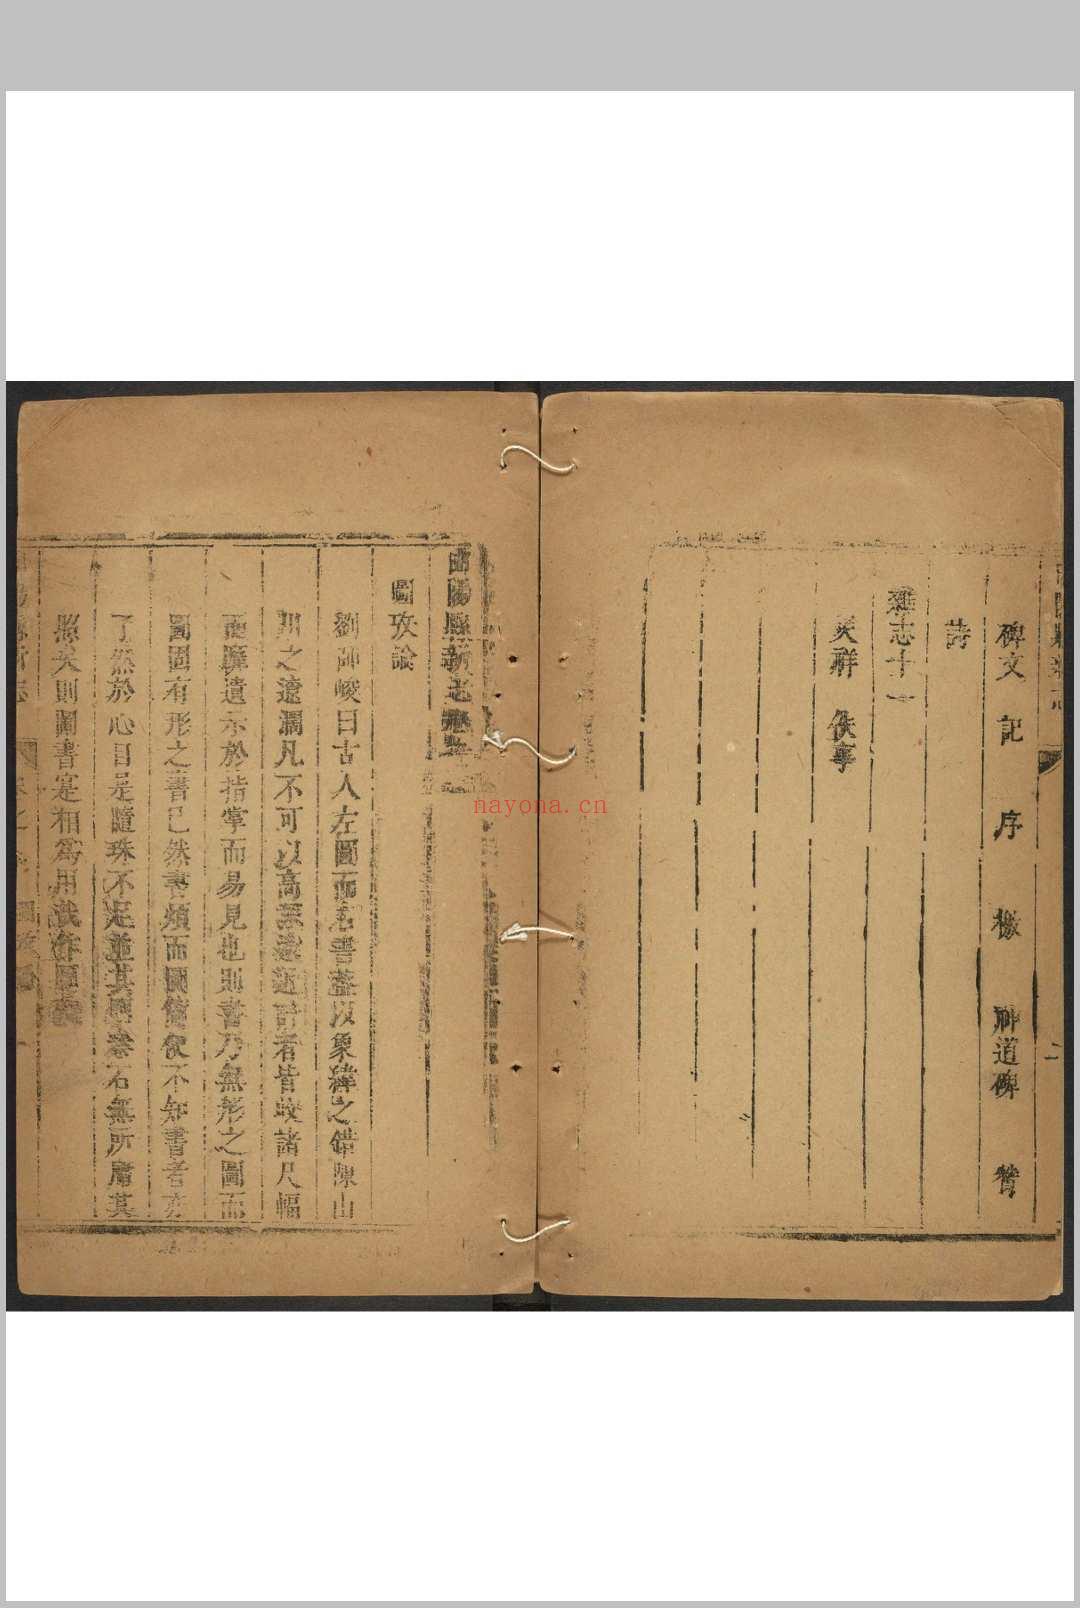 碑文 記 序 檄 神道碑 贊
詩
雜志十一
災祥 佚事
曲陽縣新志卷
圖攷論
劉師峻曰古人左圖而右書蓋以象緯之錯陳山
川之遼濶凡不可以高深遠近計者皆收諸尺幅
而靡遺示於指掌而易見也則書乃無形之圖而
圖固有形之書已然書煩而圖簡不知書者亦
了然於心目是隨珠不足並其照秦石無所庸其
照矣則圖書寔相為用哉作圖攷
nayona.cn